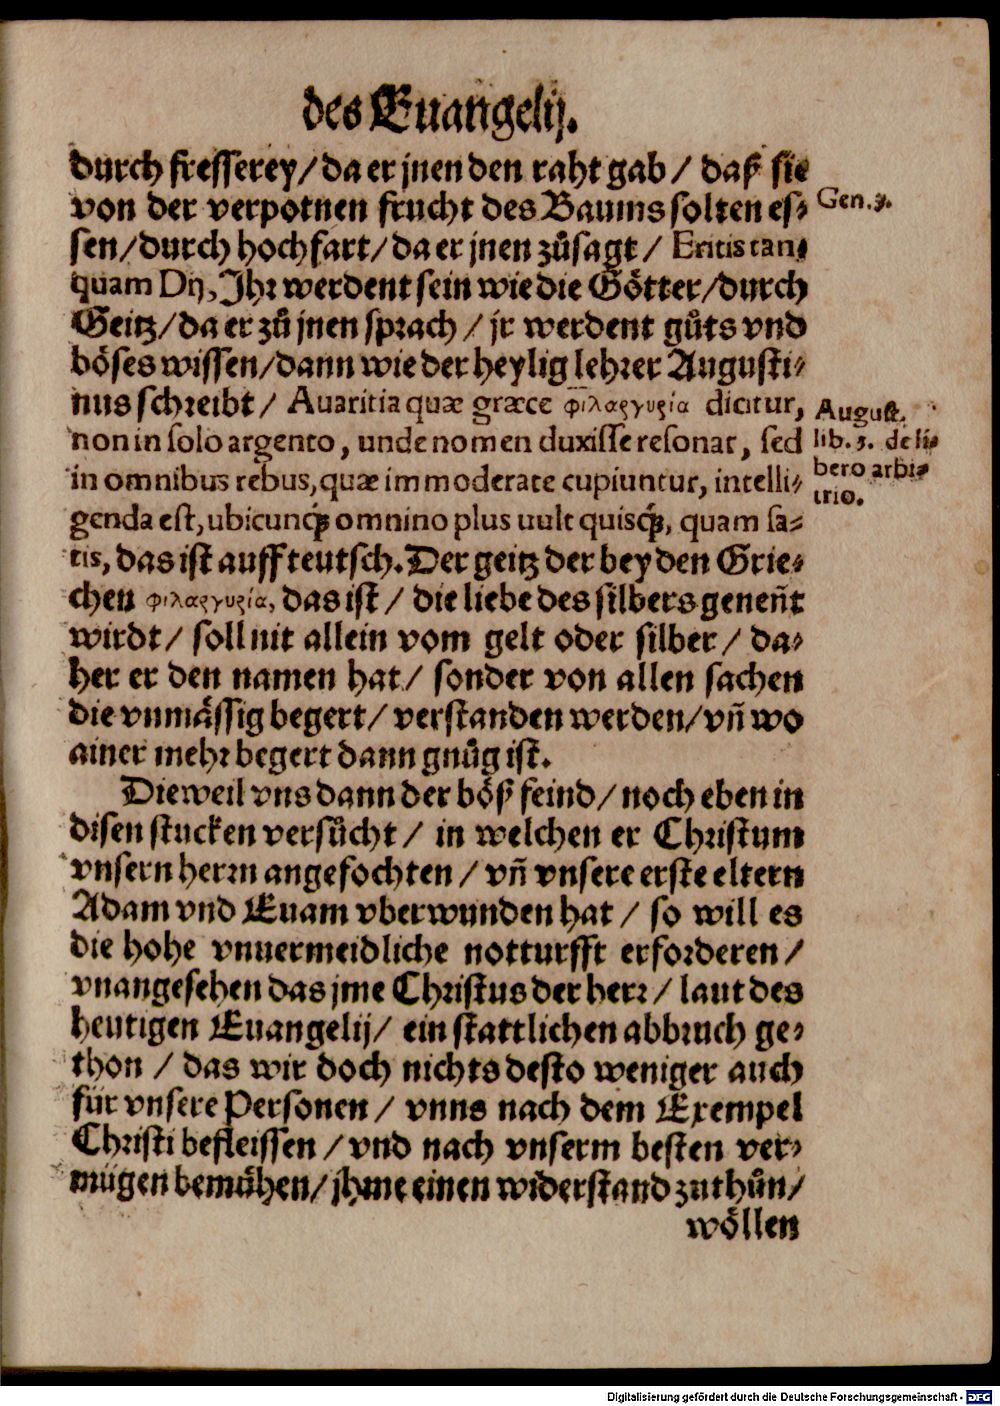 des Euangelij.
durch fresserey/ da er jnen den raht gab/ daß sie
von der verpotnen frucht des Baums solten es-
Gen. 3.
sen/ durch hochfart/ da er jnen zůsagt/ Eritis tan-
quam Dij, Ihr werdent sein wie die Götter/ durch
Geitz/ da er zů jnen sprach/ jr werdent gůts vnd
böses wissen/ dann wie der heylig lehrer Augusti-
nus schreibt/ Auaritia quæ græce φιλαργυρία dicitur,
August.
non in solo argento, unde nomen duxisse resonat, sed
lib. 3. de li-
in omnibus rebus, quæ immoderate cupiuntur, intelli-
bero arbi-
trio.
genda est, ubicunq́; omnino plus uult quisq́;, quam sa-
tis, das ist auff teutsch. Der geitz der bey den Grie-
chen φιλαργυρία, das ist/ die liebe des silbers geneñt
wirdt/ soll nit allein vom gelt oder silber/ da-
her er den namen hat/ sonder von allen sachen
die vnmässig begert/ verstanden werden/ vñ wo
ainer mehr begert dann gnůg ist.
Dieweil vns dann der böß feind/ noch eben in
disen stucken versůcht/ in welchen er Christum
vnsern herrn angefochten/ vñ vnsere erste eltern
Adam vnd Euam vberwunden hat/ so will es
die hohe vnuermeidliche notturfft erforderen/
vnangesehen das jme Christus der herr/ laut des
heutigen Euangelij/ ein stattlichen abbruch ge-
thon/ das wir doch nichts desto weniger auch
für vnsere Personen/ vnns nach dem Exempel
Christi befleissen/ vnd nach vnserm besten ver-
mügen bemühen/ jhme einen widerstand zuthůn/
wöllen
Digitalisierung gefördert durch die Deutsche Forschungsgemeinschaft - DFG